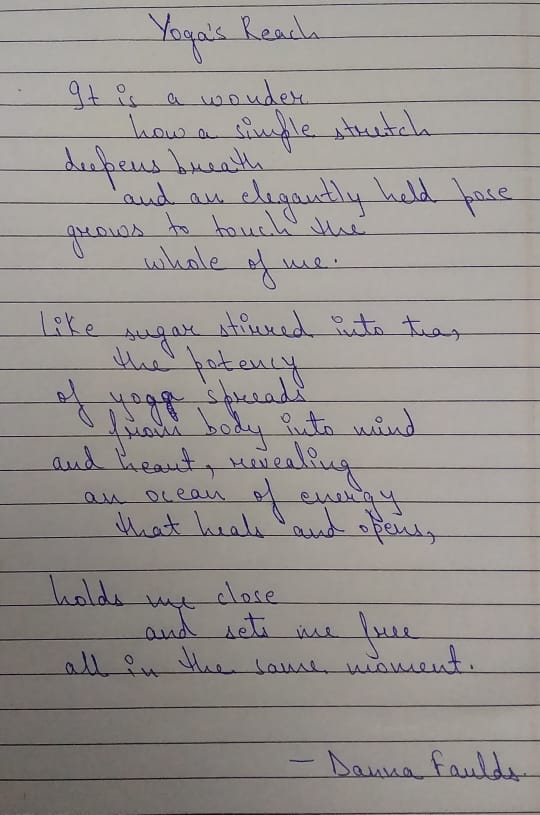 Yoga's Reach
It is a wonder
how a simple stretch
deepens breath
and an elegantly held pose
grows to touch the
whole of me.
Like sugar stirred into tea,
the potency
of yoga spreads
from body into mind
and heart, revealing
an ocean of energy
that heals and opens,
holds me close
and sets me free
all in the same moment.
– Danna Faulds.